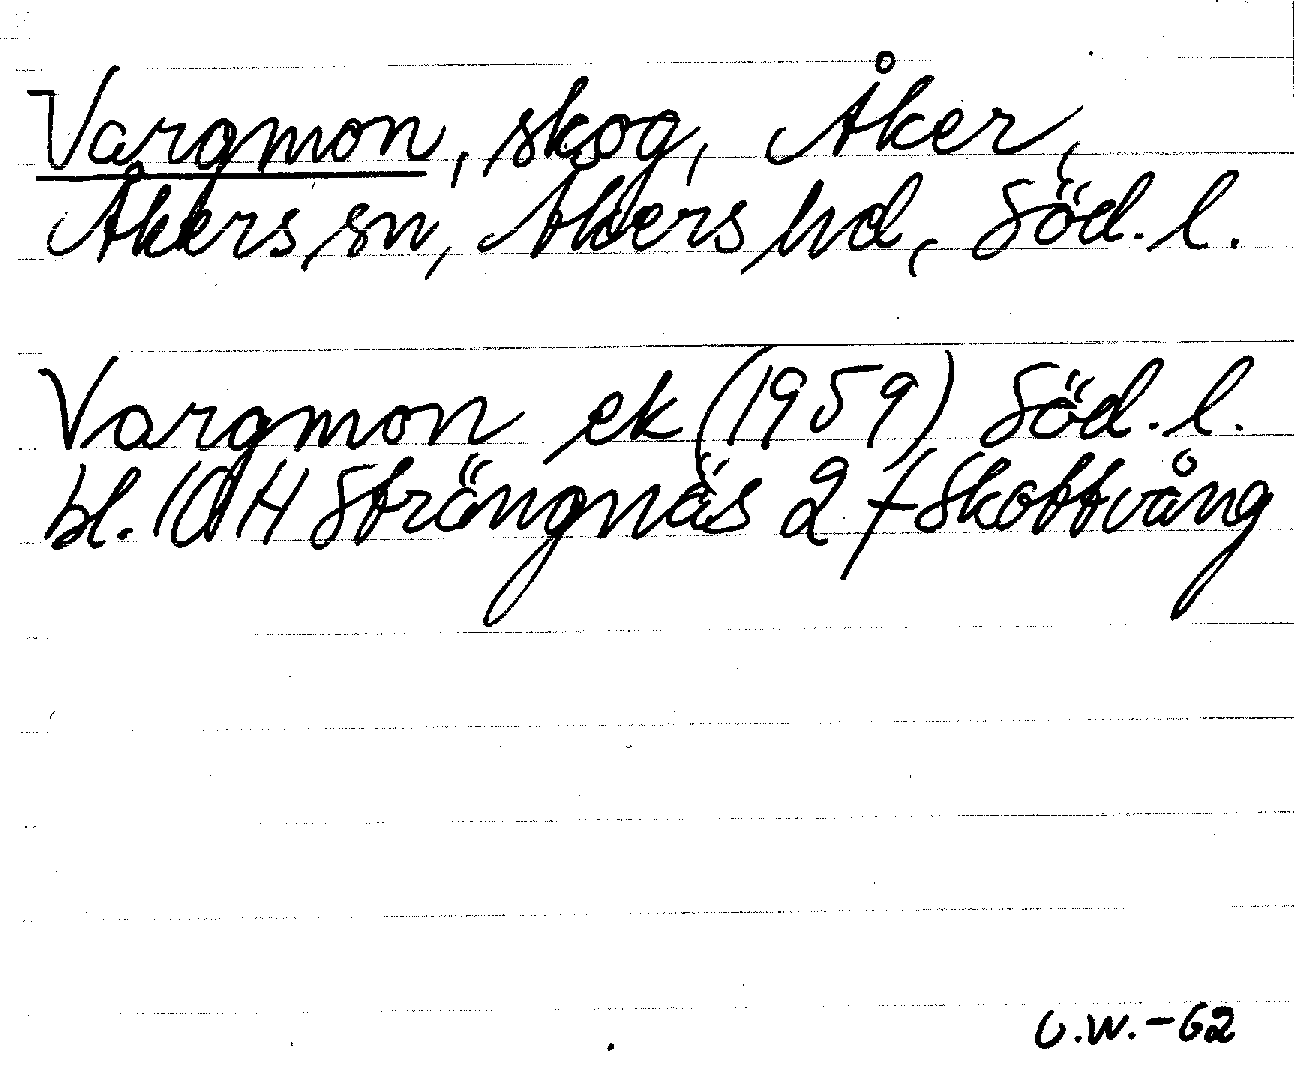 Vargmon, skog, Åker,
Åkers sn, Åkers hd, Söd. l.
Vargmon ek (1959) Söd. l.
bl. 10 H Strängnäs 2 f Skottvång
U.W.-62